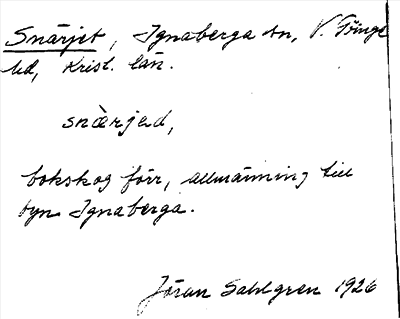 Snärjet, Ignaberga sn, V. Göinge
hd, Krist. län.
snærjed,
bokskog förr, allmänning till
byn Ignaberga.
Jöran Sahlgren 1926